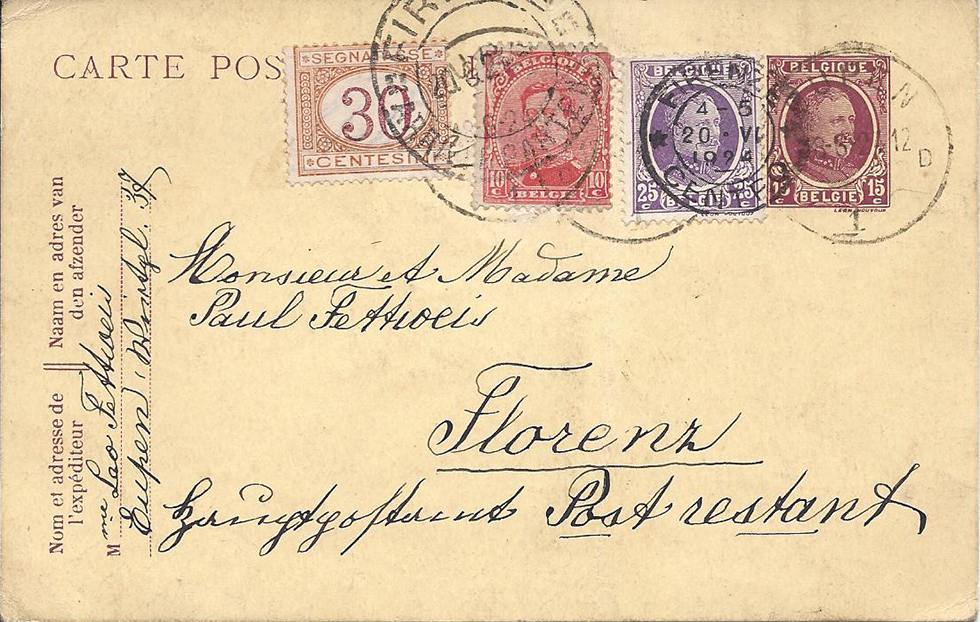 CARTE POS
SEGNATASSE
30
CENTESI
BELGIQUE
10 c 10 c
BELGIË
BELGIQUE
25 c 25 c
BELGIË
FIRENZE
4-5
20 · VI
192
BELGIQUE
15 c
BELGIË
12
D
1
Naam en adres van
den afzender
Nom et adresse de
l'expéditeur
Mme Leo Fettweis
Eupen, Wirtzf. 37
Monsieur et Madame
Paul Fettweis
Florenz
Hauptpostamt Post restant